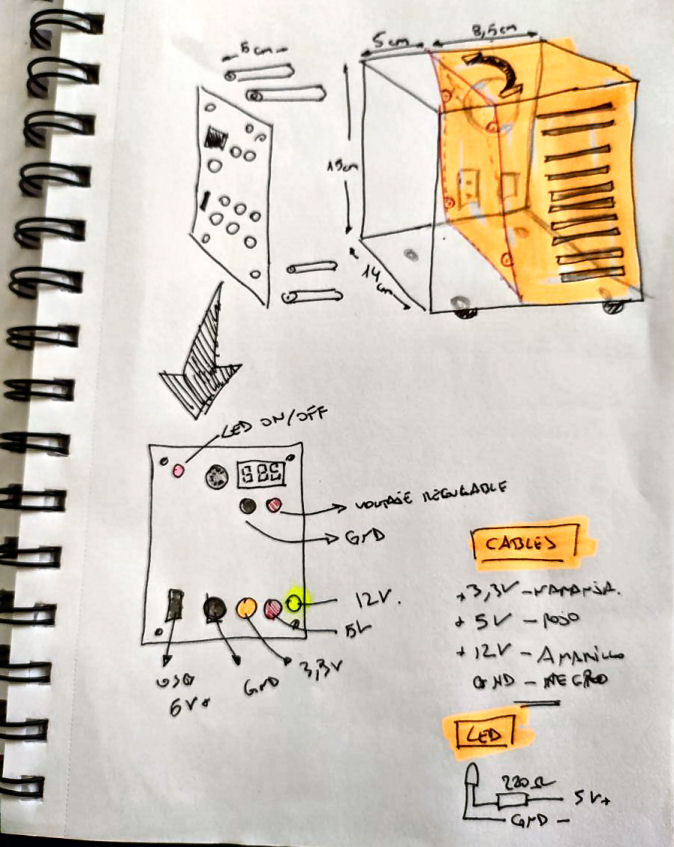 5cm
5cm
8,5cm
15cm
14
cm
LED ON/OFF
VOLTAJE REGULABLE
GND
12V.
5V
3,3V
GND
USB
5V+
CABLES
+3,3V - NARANJA.
+5V - ROJO
+12V - AMARILLO
GND - NEGRO
LED
220Ω
5V+
GND -